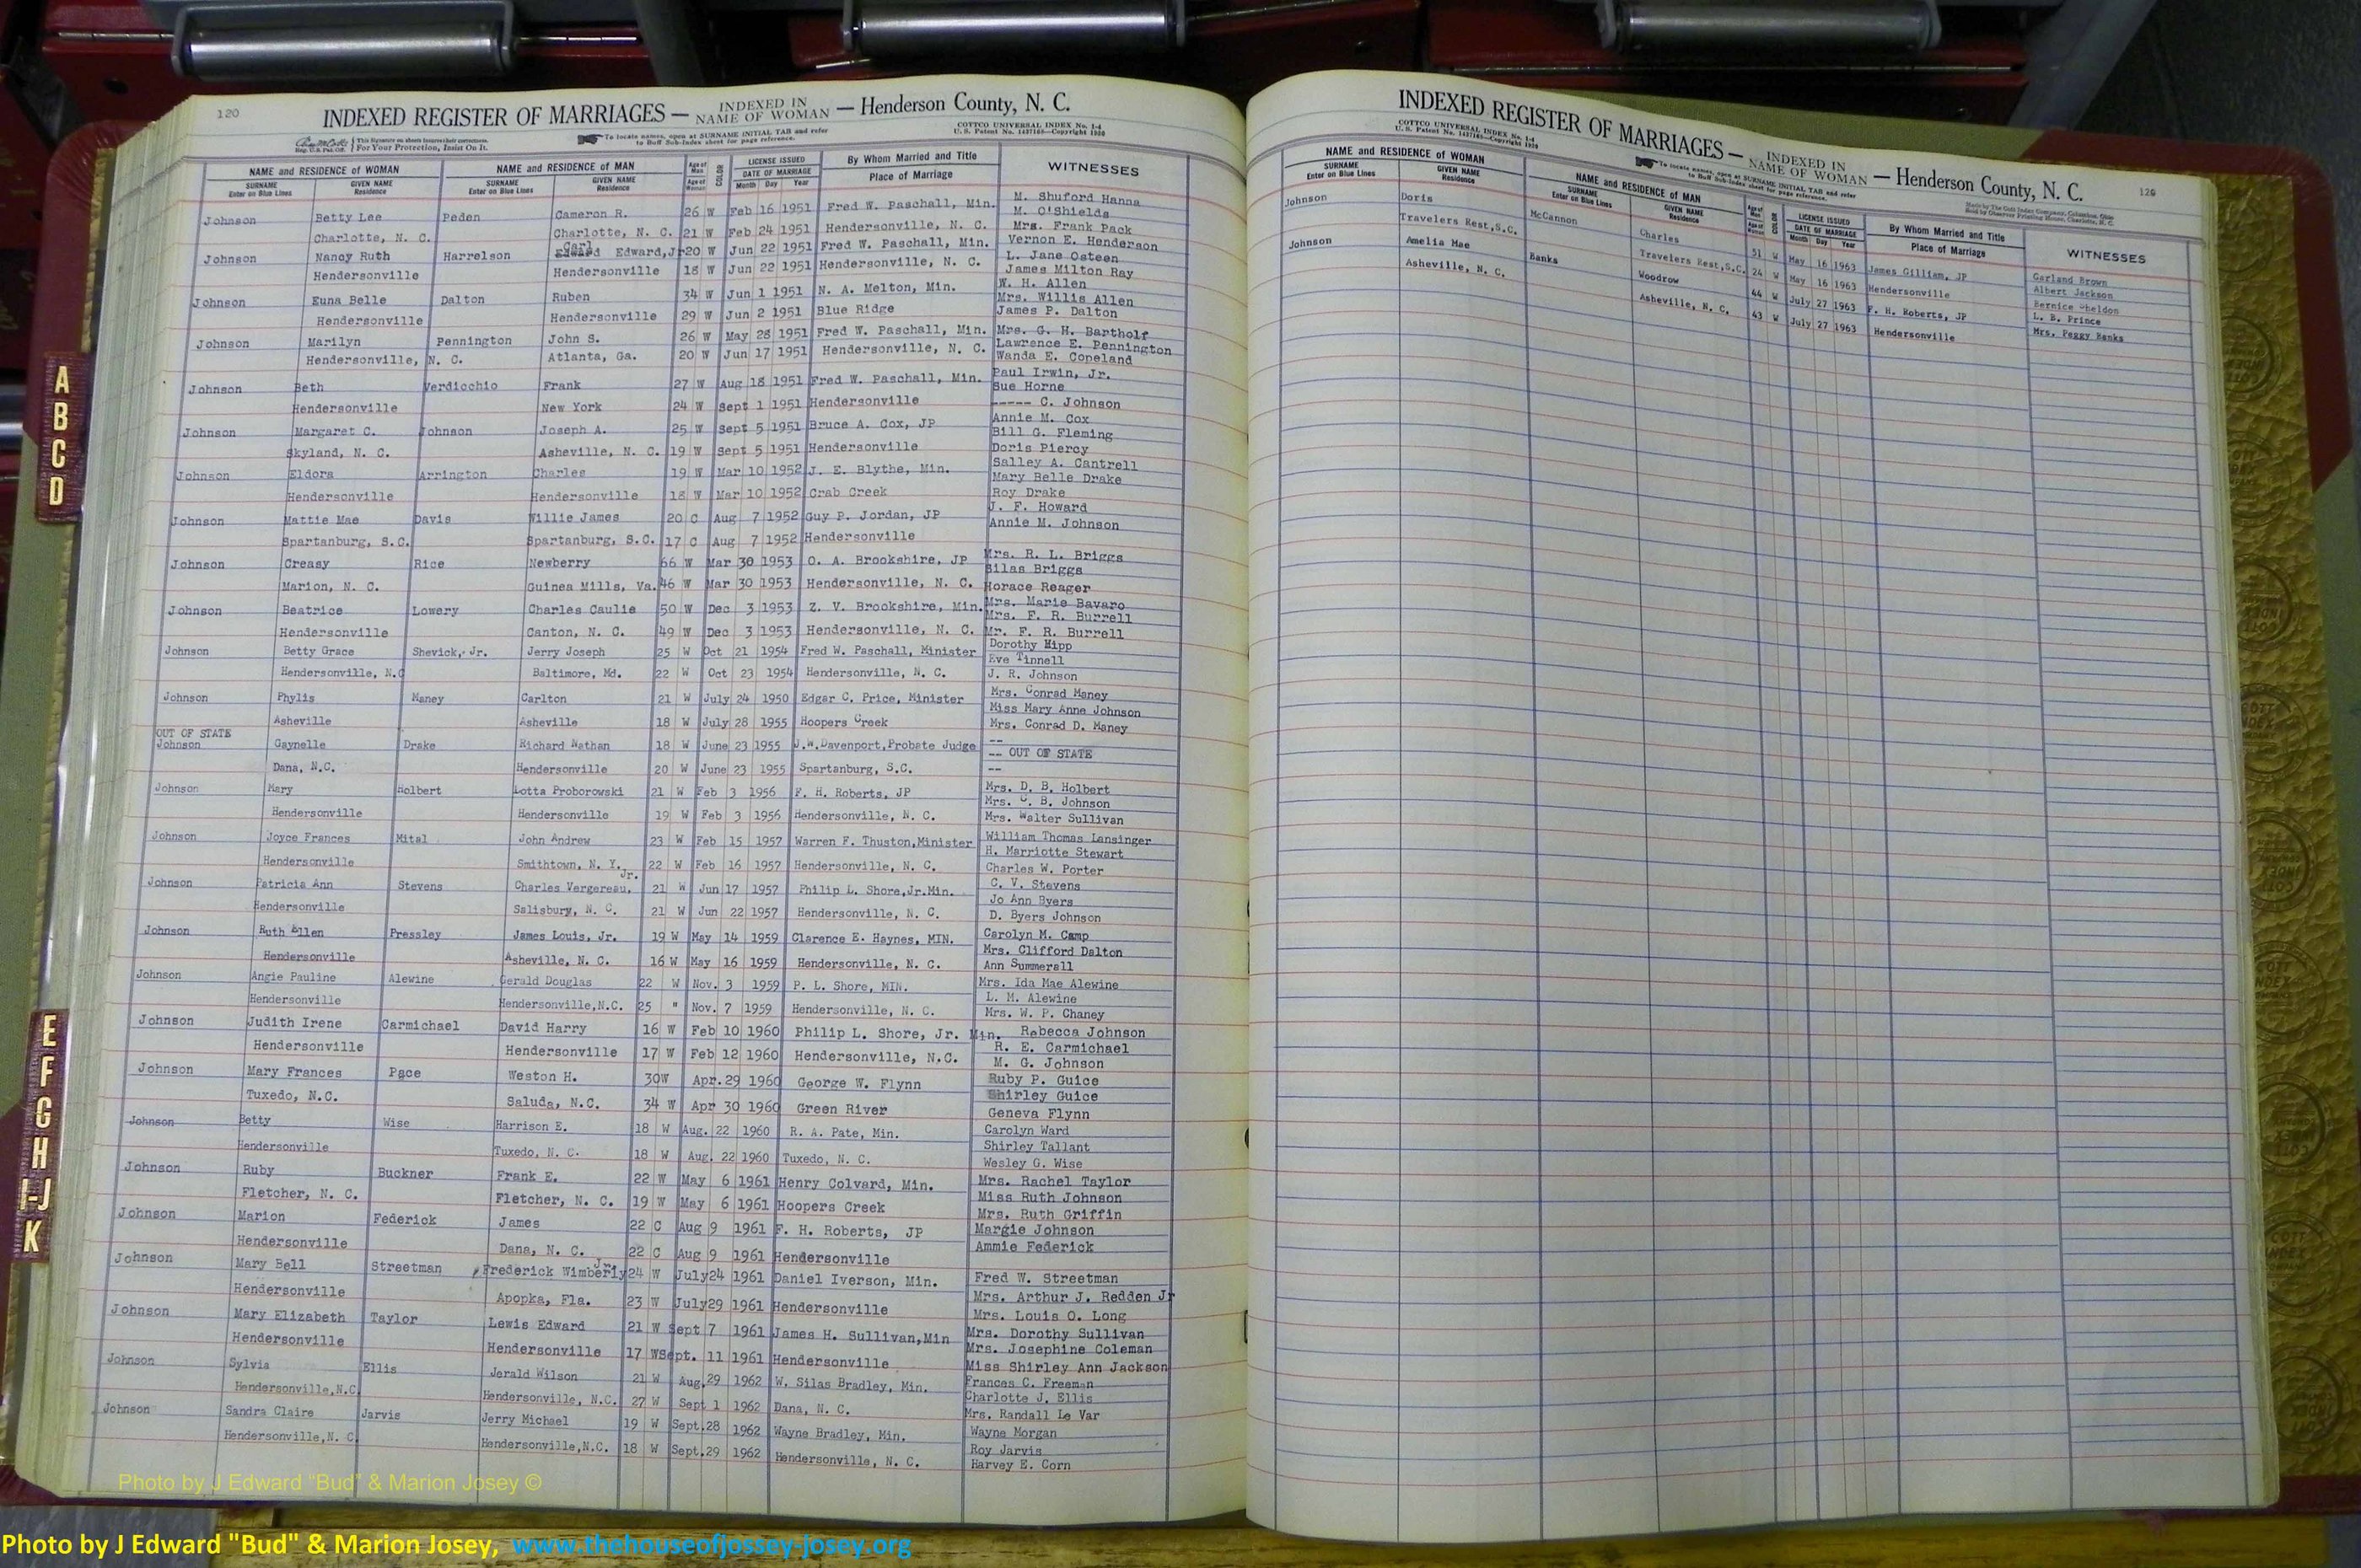 120
INDEXED REGISTER OF MARRIAGES — INDEXED IN NAME OF WOMAN — Henderson County, N. C.
This Signature on sheets Insures their correctness.
For Your Protection, Insist On It.
To locate names, open at SURNAME INITIAL TAB and refer
to Buff Sub-Index sheet for page reference.
COTTCO UNIVERSAL INDEX No. 1-4
U. S. Patent No. 1437168—Copyright 1930
NAME and RESIDENCE OF WOMAN NAME and RESIDENCE OF MAN Age of Man COLOR LICENSE ISSUED By Whom Married and Title WITNESSES
SURNAME GIVEN NAME SURNAME GIVEN NAME Age of Woman DATE OF MARRIAGE Place of Marriage
Enter on Blue Lines Residence Enter on Blue Lines Residence Month Day Year
Johnson Betty Lee Peden Cameron R. 26 W Feb 16 1951 Fred W. Paschall, Min. M. Shuford Hanna
M. O'Shields
Charlotte, N. C. Charlotte, N. C. 21 W Feb 24 1951 Hendersonville, N. C. Mrs. Frank Pack
Johnson Nancy Ruth Harrelson Carl Edward,Jr 20 W Jun 22 1951 Fred W. Paschall, Min. Vernon E. Henderson
L. Jane Osteen
Hendersonville Hendersonville 18 W Jun 22 1951 Hendersonville, N. C. James Milton Ray
Johnson Euna Belle Dalton Ruben 34 W Jun 1 1951 N. A. Melton, Min. W. H. Allen
Mrs. Willis Allen
Hendersonville Hendersonville 29 W Jun 2 1951 Blue Ridge James P. Dalton
Johnson Marilyn Pennington John S. 26 W May 28 1951 Fred W. Paschall, Min. Mrs. G. H. Bartholf
Lawrence E. Pennington
Hendersonville, N. C. Atlanta, Ga. 20 W Jun 17 1951 Hendersonville, N. C. Wanda E. Copeland
Johnson Beth Verdicchio Frank 27 W Aug 18 1951 Fred W. Paschall, Min. Paul Irwin, Jr.
Sue Horne
Hendersonville New York 24 W Sept 1 1951 Hendersonville ----- C. Johnson
Johnson Margaret C. Johnson Joseph A. 25 W Sept 5 1951 Bruce A. Cox, JP Annie M. Cox
Bill G. Fleming
Skyland, N. C. Asheville, N. C. 19 W Sept 5 1951 Hendersonville Doris Piercy
Johnson Eldora Arrington Charles 19 W Mar 10 1952 J. E. Blythe, Min. Salley A. Cantrell
Mary Belle Drake
Hendersonville Hendersonville 18 W Mar 10 1952 Crab Creek Roy Drake
Johnson Mattie Mae Davis Willie James 20 C Aug 7 1952 Guy P. Jordan, JP J. F. Howard
Annie M. Johnson
Spartanburg, S.C. Spartanburg, S.C. 17 C Aug 7 1952 Hendersonville
Johnson Creasy Rice Newberry 66 W Mar 30 1953 O. A. Brookshire, JP Mrs. R. L. Briggs
Silas Briggs
Marion, N. C. Guinea Mills, Va. 46 W Mar 30 1953 Hendersonville, N. C. Horace Reager
Johnson Beatrice Lowery Charles Caulie 50 W Dec 3 1953 Z. V. Brookshire, Min. Mrs. Marie Bavaro
Mrs. F. R. Burrell
Hendersonville Canton, N. C. 49 W Dec 3 1953 Hendersonville, N. C. Mr. F. R. Burrell
Johnson Betty Grace Shevick, Jr. Jerry Joseph 25 W Oct 21 1954 Fred W. Paschall, Minister Dorothy Hipp
Eve Tinnell
Hendersonville, N.C Baltimore, Md. 22 W Oct 23 1954 Hendersonville, N. C. J. R. Johnson
Johnson Phylis Maney Carlton 21 W July 24 1950 Edgar C. Price, Minister Mrs. Conrad Maney
Miss Mary Anne Johnson
Asheville Asheville 18 W July 28 1955 Hoopers Creek Mrs. Conrad D. Maney
OUT OF STATE
Johnson Gaynelle Drake Richard Nathan 18 W June 23 1955 J.W.Davenport,Probate Judge --
-- OUT OF STATE
Dana, N.C. Hendersonville 20 W June 23 1955 Spartanburg, S.C. --
Johnson Mary Holbert Lotta Proborowski 21 W Feb 3 1956 F. H. Roberts, JP Mrs. D. B. Holbert
Mrs. C. B. Johnson
Hendersonville Hendersonville 19 W Feb 3 1956 Hendersonville, N. C. Mrs. Walter Sullivan
Johnson Joyce Frances Mital John Andrew 23 W Feb 15 1957 Warren F. Thuston,Minister William Thomas Lansinger
H. Marriotte Stewart
Hendersonville Smithtown, N. Y. 22 W Feb 16 1957 Hendersonville, N. C. Charles W. Porter
Johnson Patricia Ann Stevens Charles Vergereau, Jr. 21 W Jun 17 1957 Philip L. Shore,Jr.Min. C. V. Stevens
Jo Ann Byers
Hendersonville Salisbury, N. C. 21 W Jun 22 1957 Hendersonville, N. C. D. Byers Johnson
Johnson Ruth Ellen Pressley James Louis, Jr. 19 W May 14 1959 Clarence E. Haynes, MIN. Carolyn M. Camp
Mrs. Clifford Dalton
Hendersonville Asheville, N. C. 16 W May 16 1959 Hendersonville, N. C. Ann Summerall
Johnson Angie Pauline Alewine Gerald Douglas 22 W Nov. 3 1959 P. L. Shore, MIN. Mrs. Ida Mae Alewine
L. M. Alewine
Hendersonville Hendersonville,N.C. 25 " Nov. 7 1959 Hendersonville, N. C. Mrs. W. P. Chaney
Johnson Judith Irene Carmichael David Harry 16 W Feb 10 1960 Philip L. Shore, Jr. Min. Rebecca Johnson
R. E. Carmichael
Hendersonville Hendersonville 17 W Feb 12 1960 Hendersonville, N.C. M. G. Johnson
Johnson Mary Frances Pace Weston H. 30W Apr. 29 1960 George W. Flynn Ruby P. Guice
Shirley Guice
Tuxedo, N.C. Saluda, N.C. 34 W Apr 30 1960 Green River Geneva Flynn
Johnson Betty Wise Harrison E. 18 W Aug. 22 1960 R. A. Pate, Min. Carolyn Ward
Shirley Tallant
Hendersonville Tuxedo, N. C. 18 W Aug. 22 1960 Tuxedo, N. C. Wesley G. Wise
Johnson Ruby Buckner Frank E. 22 W May 6 1961 Henry Colvard, Min. Mrs. Rachel Taylor
Miss Ruth Johnson
Fletcher, N. C. Fletcher, N. C. 19 W May 6 1961 Hoopers Creek Mrs. Ruth Griffin
Johnson Marion Federick James 22 C Aug 9 1961 F. H. Roberts, JP Margie Johnson
Ammie Federick
Hendersonville Dana, N. C. 22 C Aug 9 1961 Hendersonville
Johnson Mary Bell Streetman Frederick Wimberly Jr. 24 W July24 1961 Daniel Iverson, Min. Fred W. Streetman
Mrs. Arthur J. Redden Jr
Hendersonville Apopka, Fla. 23 W July29 1961 Hendersonville Mrs. Louis O. Long
Johnson Mary Elizabeth Taylor Lewis Edward 21 W Sept 7 1961 James H. Sullivan,Min Mrs. Dorothy Sullivan
Mrs. Josephine Coleman
Hendersonville Hendersonville 17 W Sept. 11 1961 Hendersonville Miss Shirley Ann Jackson
Johnson Sylvia Ellis Jerald Wilson 21 W Aug.29 1962 W. Silas Bradley, Min. Frances C. Freeman
Charlotte J. Ellis
Hendersonville,N.C Hendersonville, N.C. 27 W Sept 1 1962 Dana, N. C. Mrs. Randall Le Var
Johnson Sandra Claire Jarvis Jerry Michael 19 W Sept.28 1962 Wayne Bradley, Min. Wayne Morgan
Roy Jarvis
Hendersonville,N. C. Hendersonville,N.C. 18 W Sept.29 1962 Hendersonville, N. C. Harvey E. Corn
A
B
C
D
E
F
G
H
I-J
K
INDEXED REGISTER OF MARRIAGES — INDEXED IN NAME OF WOMAN — Henderson County, N. C.
120
COTTCO UNIVERSAL INDEX No. 1-4
U. S. Patent No. 1437168—Copyright 1930
To locate names, open at SURNAME INITIAL TAB and refer
to Buff Sub-Index sheet for page reference.
NAME and RESIDENCE OF WOMAN NAME and RESIDENCE OF MAN Age of Man COLOR LICENSE ISSUED By Whom Married and Title WITNESSES
SURNAME GIVEN NAME SURNAME GIVEN NAME Age of Woman DATE OF MARRIAGE Place of Marriage
Enter on Blue Lines Residence Enter on Blue Lines Residence Month Day Year
Johnson Doris McCannon Charles 51 W May 16 1963 James Gilliam, JP Garland Brown
Albert Jackson
Travelers Rest,S.C. Travelers Rest,S.C. 24 W May 16 1963 Hendersonville Bernice Sheldon
Johnson Amelia Mae Banks Woodrow 44 W July 27 1963 F. H. Roberts, JP L. B. Prince
Asheville, N. C. Asheville, N. C. 43 W July 27 1963 Hendersonville Mrs. Peggy Banks
Photo by J Edward "Bud" & Marion Josey ©
Photo by J Edward "Bud" & Marion Josey, www.thehouseofjossey-josey.org